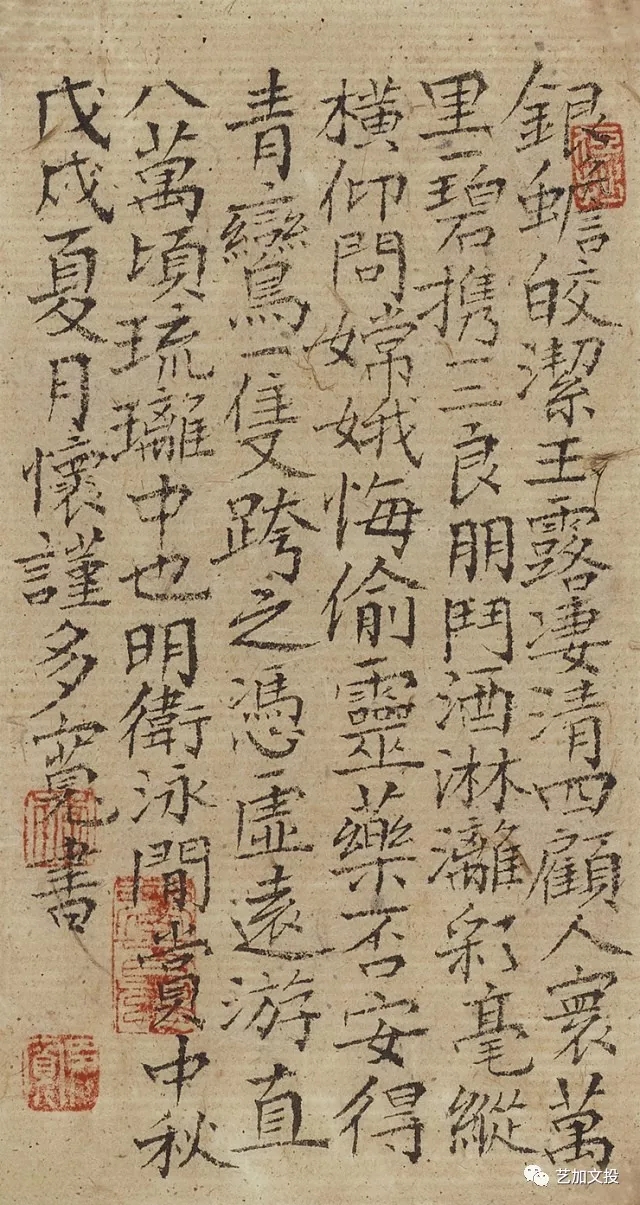 銀蟾皎潔玉露凄清四顧人寰萬
里一碧携三良朋鬥酒淋漓彩毫縱
橫仰問嫦娥悔偷靈藥否安得
青鸞一隻跨之憑虛遠游直
八萬頃琉璃中也明衛泳閒賞中秋
戊戌夏月懷謹多寬書
艺加文投